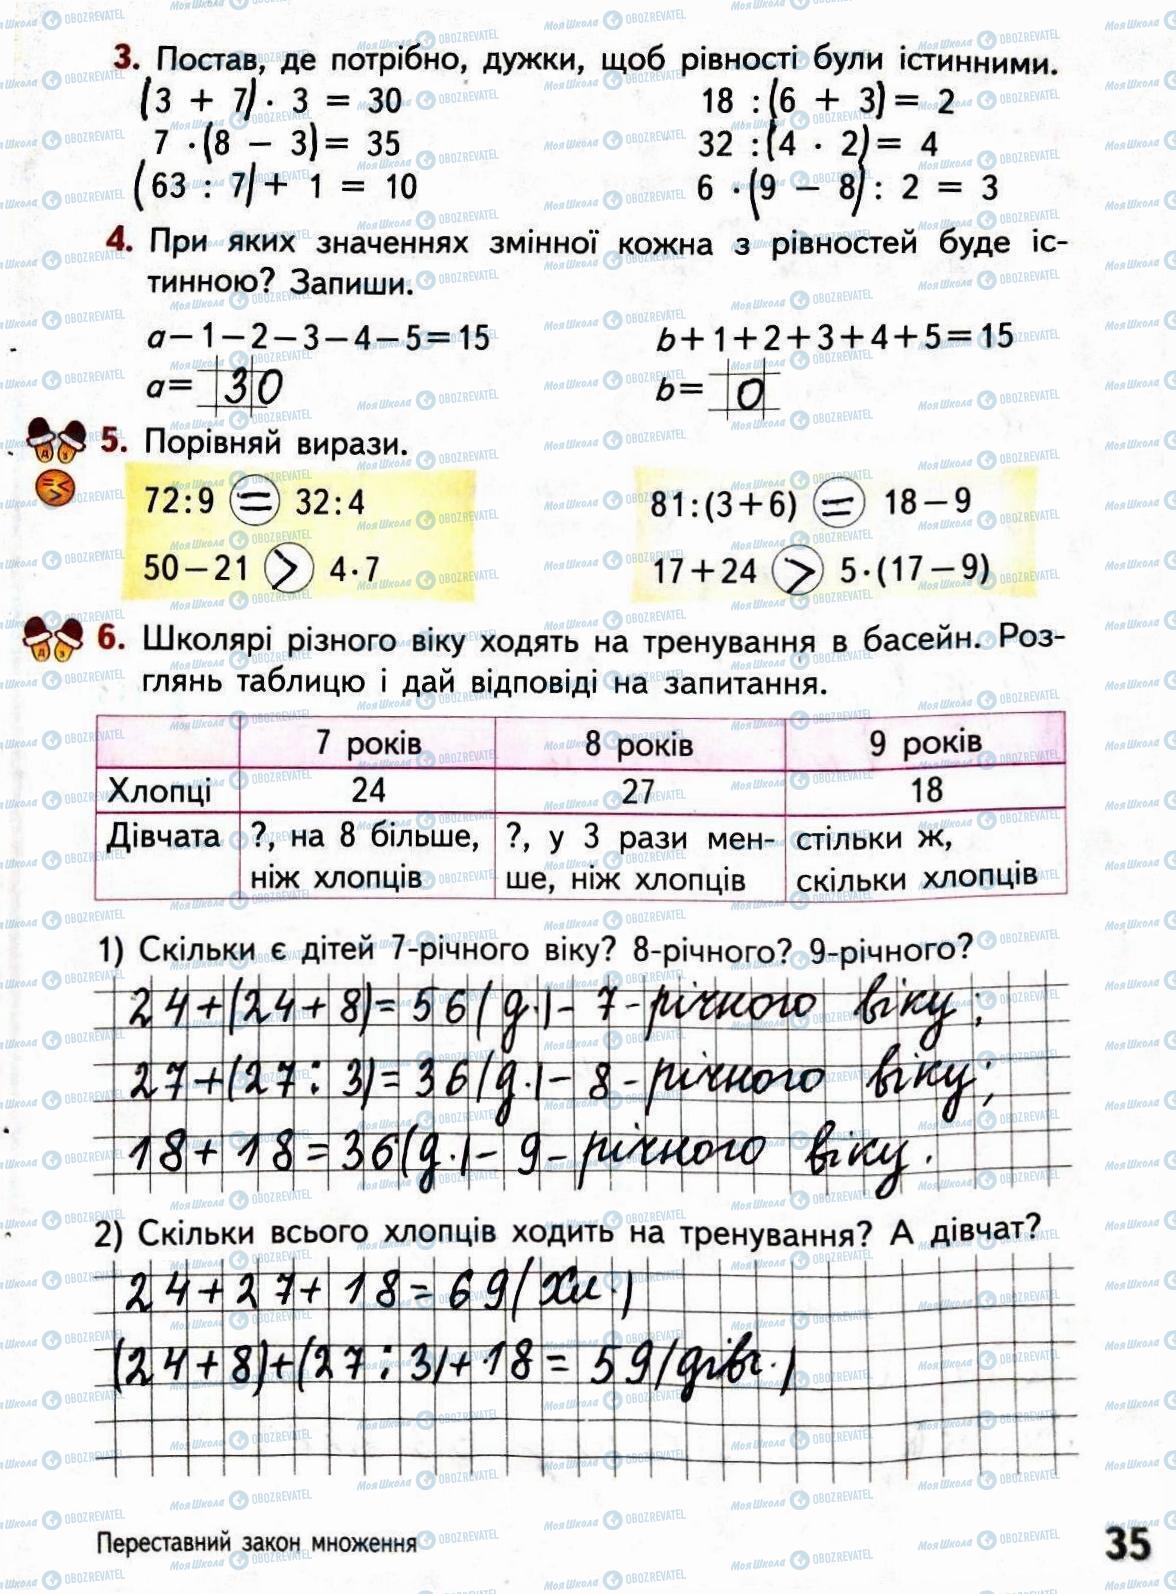 3. Постав, де потрібно, дужки, щоб рівності були істинними.
(3 + 7) · 3 = 30 18 : (6 + 3) = 2
7 · (8 − 3) = 35 32 : (4 · 2) = 4
(63 : 7) + 1 = 10 6 · (9 − 8) : 2 = 3
4. При яких значеннях змінної кожна з рівностей буде іс-
тинною? Запиши.
a−1−2−3−4−5=15 b+1+2+3+4+5=15
a= 30 b= 0
5. Порівняй вирази.
72:9 = 32:4 81:(3+6) = 18−9
50−21 > 4·7 17+24 > 5·(17−9)
6. Школярі різного віку ходять на тренування в басейн. Роз-
глянь таблицю і дай відповіді на запитання.
7 років 8 років 9 років
Хлопці 24 27 18
Дівчата ?, на 8 більше, ?, у 3 рази мен- стільки ж,
ніж хлопців ше, ніж хлопців скільки хлопців
1) Скільки є дітей 7-річного віку? 8-річного? 9-річного?
24+(24+8)=56(д.)-7-річного віку;
27+(27:3)=36(д.)-8-річного віку;
18+18=36(д.)-9-річного віку.
2) Скільки всього хлопців ходить на тренування? А дівчат?
24+27+18=69(хл.)
(24+8)+(27:3)+18=59(дівч.)
Переставний закон множення 35
МояШкола OBOZREVATEL